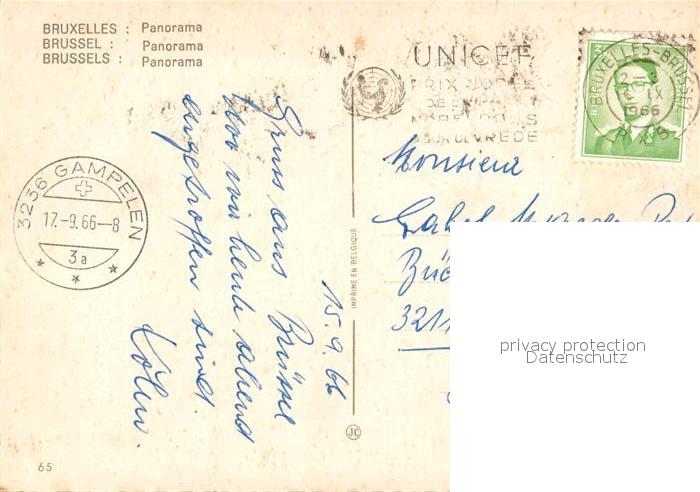 BRUXELLES : Panorama
BRUSSEL : Panorama
BRUSSELS : Panorama
UNICEF
PRIX NOBEL
DE LA PAIX
NOBELPRIJS
VOOR DE VREDE
BRUXELLES-BRUSSEL
IX
1966
3236 GAMPELEN
17.-9.66-8
3a
15. 9. 66
Gruss aus Brüssel
wo wir heute abend
eingetroffen sind.
Monsieur
3211
IMPRIME EN BELGIQUE
JC
65
privacy protection
Datenschutz